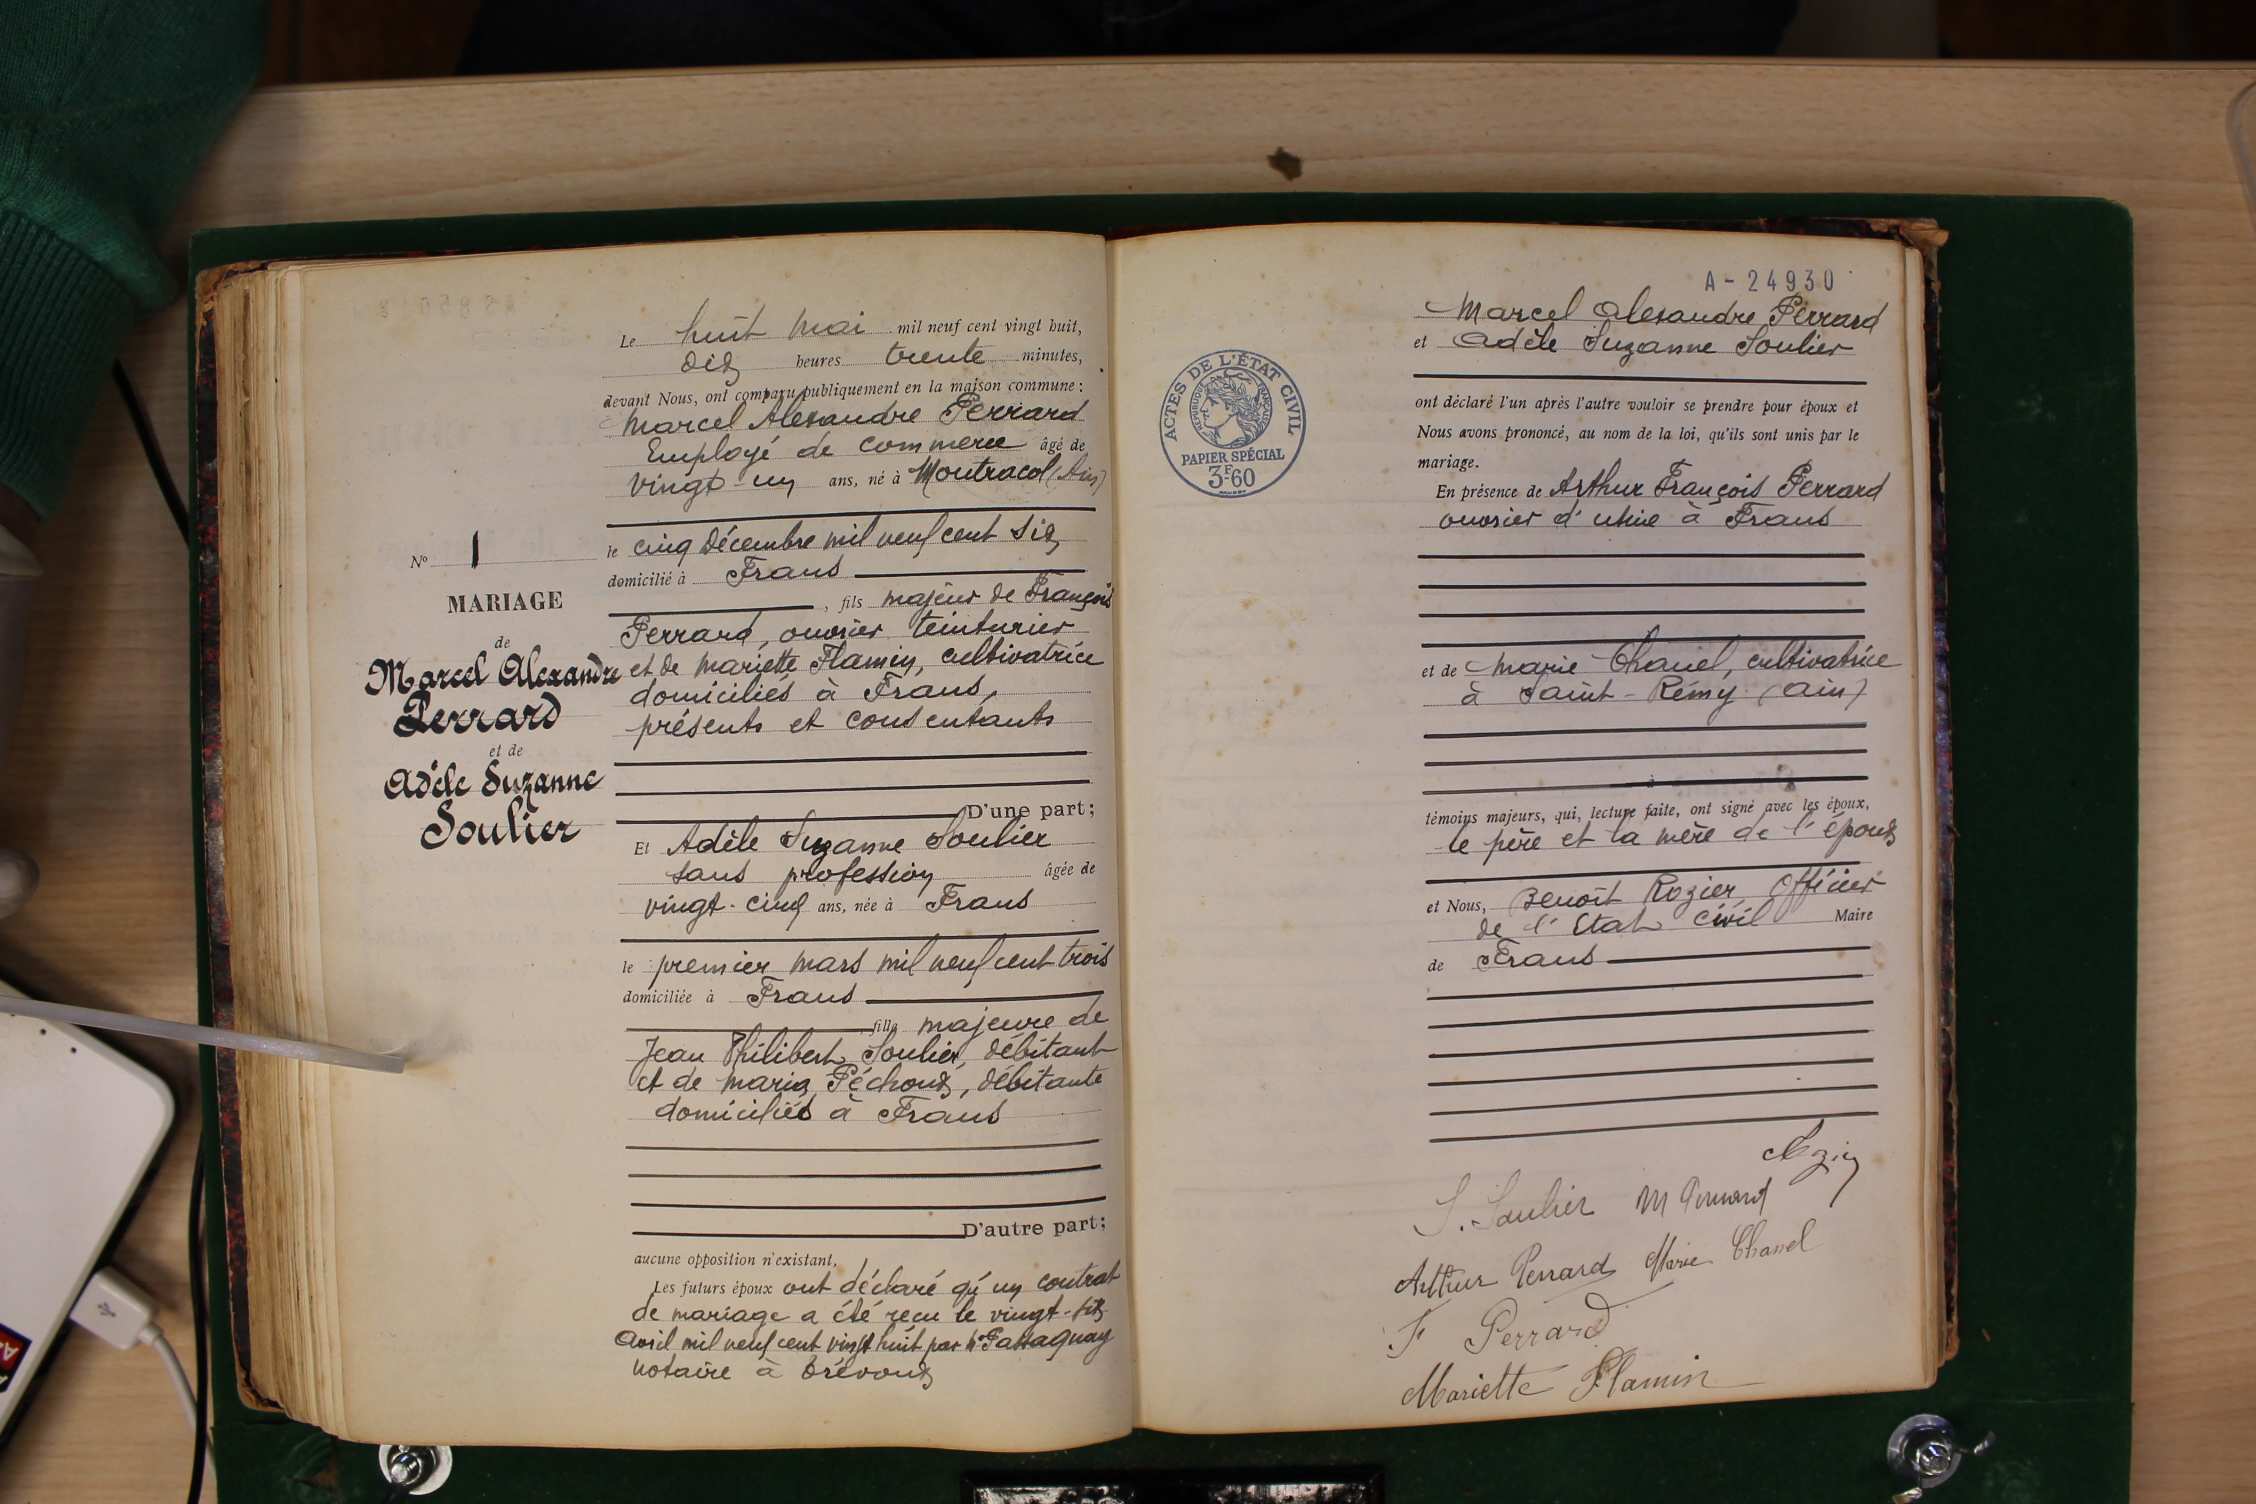 Le huit mai mil neuf cent vingt huit,
dix heures trente minutes,
devant Nous, ont comparu publiquement en la maison commune :
Marcel Alexandre Perrard
Employé de commerce âgé de
vingt-un ans, né à Montracol (Ain)
le cinq décembre mil neuf cent six
domicilié à Frans
, fils majeur de François
Perrard, ouvrier teinturier
et de Mariette Flamin, cultivatrice
domiciliés à Frans,
présents et consentants
D'une part;
Et Adèle Suzanne Soulier
sans profession âgée de
vingt-cinq ans, née à Frans
le premier mars mil neuf cent trois
domiciliée à Frans
fille majeure de
Jean Philibert Soulier, débitant
et de Maria Péchoux, débitante
domiciliés à Frans
D'autre part;
aucune opposition n'existant,
Les futurs époux ont déclaré qu'un contrat
de mariage a été reçu le vingt-six
avril mil neuf cent vingt huit par Me Passaquay
notaire à Trévoux
No 1
MARIAGE
de
Marcel Alexandre
Perrard
et de
Adèle Suzanne
Soulier
A-24930
Marcel Alexandre Perrard
et Adèle Suzanne Soulier
ont déclaré l'un après l'autre vouloir se prendre pour époux et
Nous avons prononcé, au nom de la loi, qu'ils sont unis par le
mariage.
En présence de Arthur François Perrard
ouvrier d'usine à Frans
et de Marie Chanel, cultivatrice
à Saint-Rémy (Ain)
témoins majeurs, qui, lecture faite, ont signé avec les époux,
le père et la mère de l'époux
et Nous, Benoît Rozier, Officier
de l'Etat civil Maire
de Frans
S. Soulier M Perrard
Arthur Perrard Marie Chanel
F Perrard
Mariette Flamin
ACTES DE L'ÉTAT CIVIL
RÉPUBLIQUE FRANÇAISE
PAPIER SPÉCIAL
3F.60